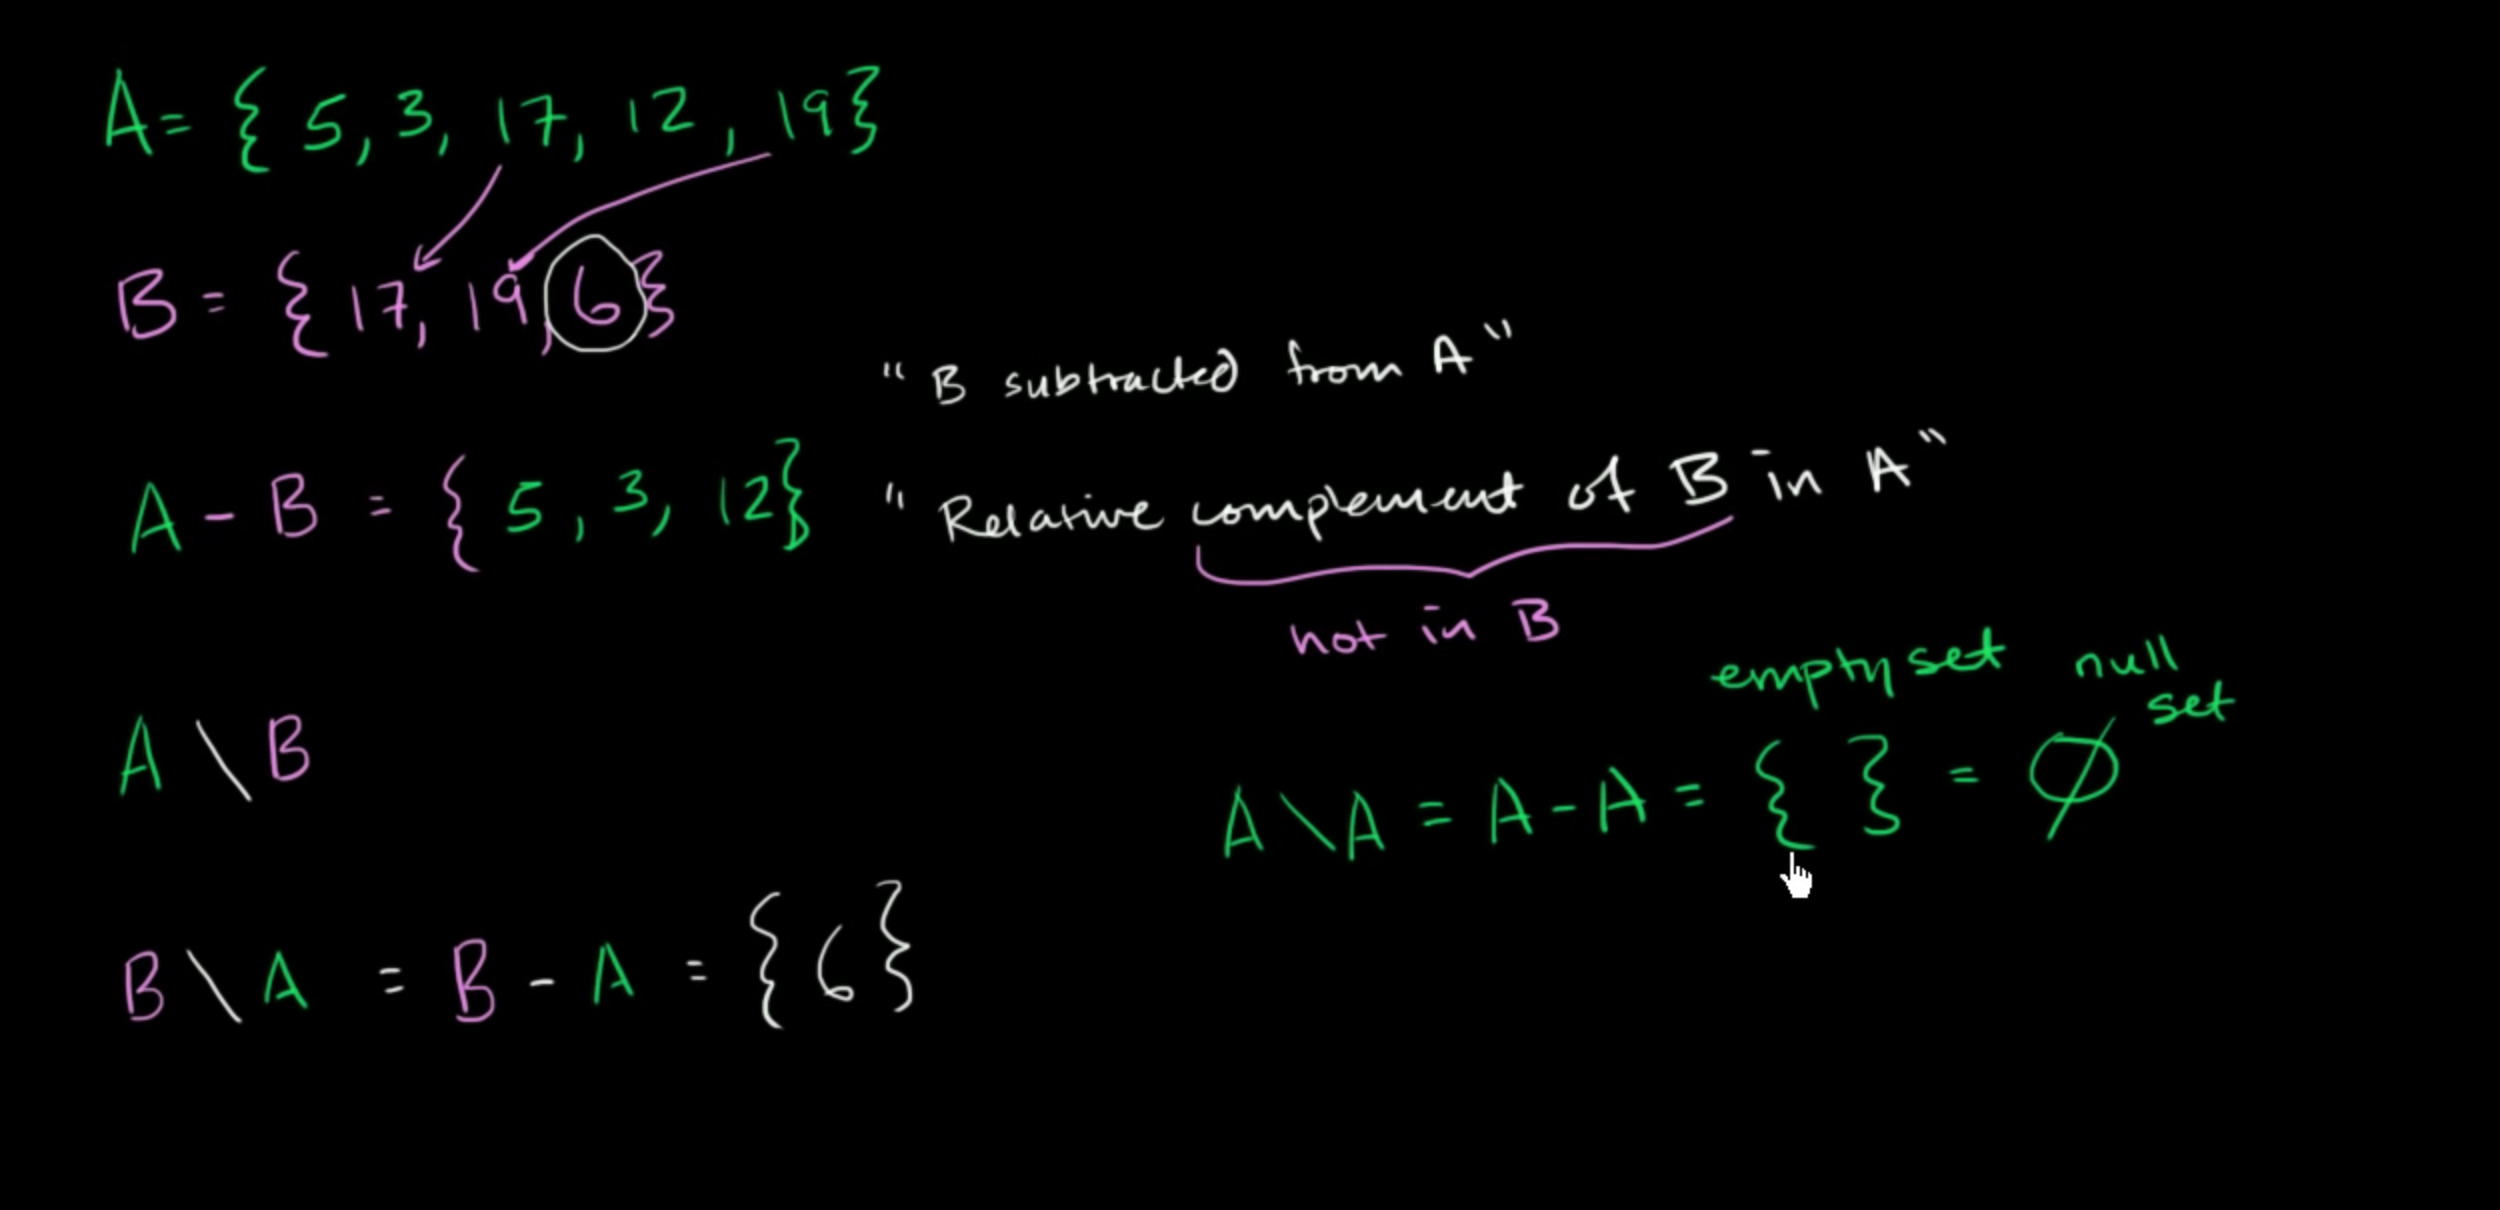 A = { 5, 3, 17, 12, 19}
B = { 17, 19, 6}
" B subtracted from A "
A - B = { 5, 3, 12}
" Relative complement of B in A "
not in B
empty set
null
set
A \ B
A \ A = A - A = { } = ∅
B \ A = B - A = { 6 }